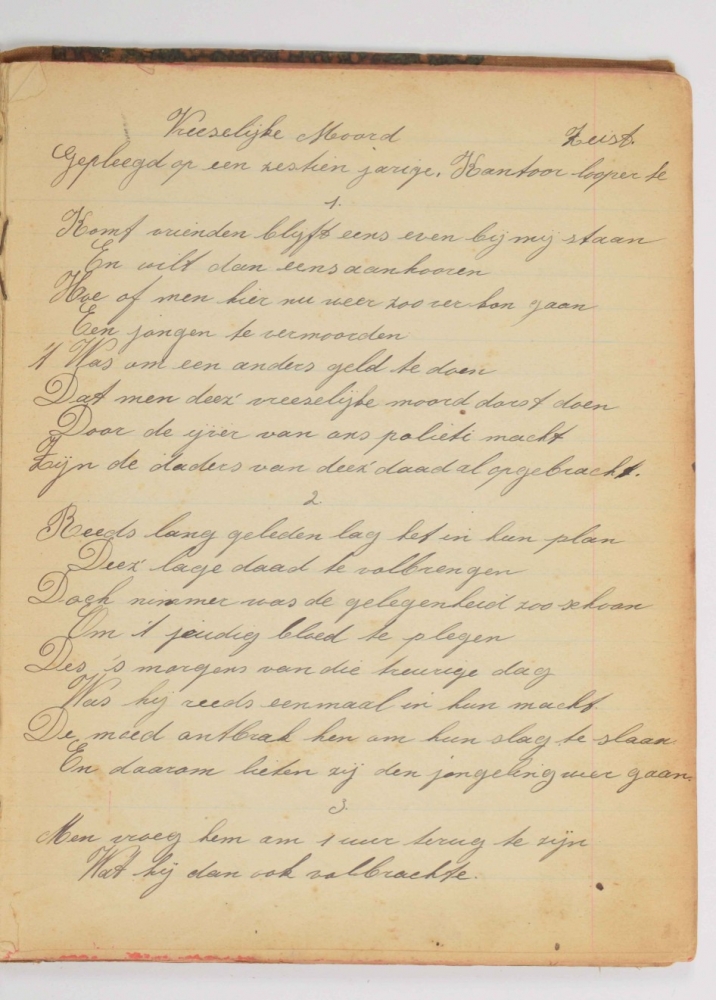 Vreeselijke Moord Zeist.
Gepleegd op een zestien jarige. Kantoor looper te
1.
Komt vrienden blyft eens even bij mij staan
En wilt dan eens aanhooren
Hoe of men hier nu weer zoo ver kon gaan
Een jongen te vermoorden
't Was om een anders geld te doen
Dat men deez' vreeselijke moord dorst doen
Door de ijver van ons polieti macht
Zijn de daders van deez' daad al opgebracht.
2.
Reeds lang geleden lag het in hun plan
Deez' lage daad te volbrengen
Doch nimmer was de gelegenheid zoo schoon
Om 't jeudig bloed te plegen
Des 's morgens van die treurige dag
Was hij reeds eenmaal in hun macht
De moed ontbrak hen om hun slag te slaan
En daarom lieten zij den jongeling weer gaan.
3.
Men vroeg hem om 1 uur terug te zijn
Wat hij dan ook volbrachte.